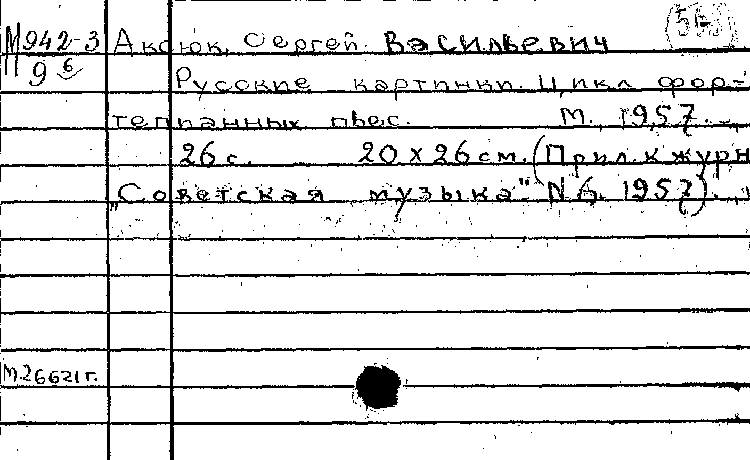 М942-3 Аксюк, Сергей Васильевич
9 6
Русские картинки. Цикл фор-
тепианных пьес. М. 1957.
26 с. 20 х 26 см. (Прил. к журн
"Советская музыка" N 6, 1957).
М26621г.